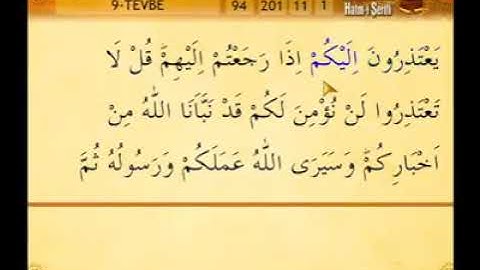 9-TEVBE 94 201 11 1 Hatm-i Şerifi
يَعْتَذِرُونَ اِلَيْكُمْ اِذَا رَجَعْتُمْ اِلَيْهِمْۜ قُلْ لَا
تَعْتَذِرُوا لَنْ نُؤْمِنَ لَكُمْ قَدْ نَبَّاَنَا اللّٰهُ مِنْ
اَخْبَارِكُمْۜ وَسَيَرَى اللّٰهُ عَمَلَكُمْ وَرَسُولُهُ ثُمَّ